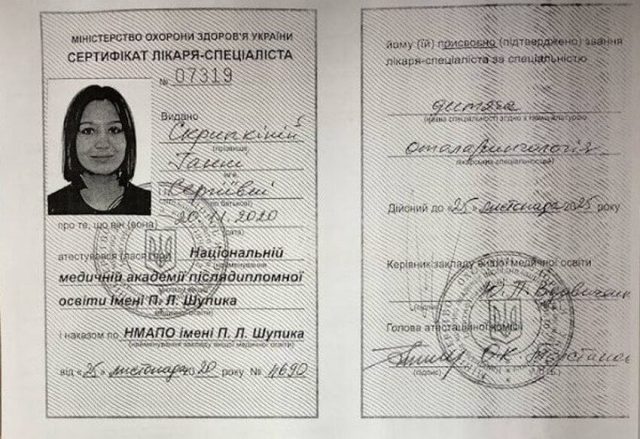 МІНІСТЕРСТВО ОХОРОНИ ЗДОРОВ'Я УКРАЇНИ
СЕРТИФІКАТ ЛІКАРЯ-СПЕЦІАЛІСТА
№ 07319
Видано
Скрипкіній
(прізвище,
Ганні
ім'я,
Сергіївні
по батькові)
20.11.2020
(дата)
про те, що він (вона)
атестувався (лася) при Національній
медичній академії післядипломної
освіти імені П. Л. Шупика
і наказом по НМАПО імені П. Л. Шупика
(найменування закладу вищої медичної освіти)
від «25» листопада 2020 року № 4690
йому (їй) присвоєно (підтверджено) звання
лікаря-спеціаліста за спеціальністю
дитяча
(назва спеціальності згідно з номенклатурою
отоларингологія
лікарських спеціальностей)
Дійсний до «25» листопада 2025 року
Керівник закладу вищої медичної освіти
Ю. П.
(підпис)
Голова атестаційної комісії
О. К.
(підпис)